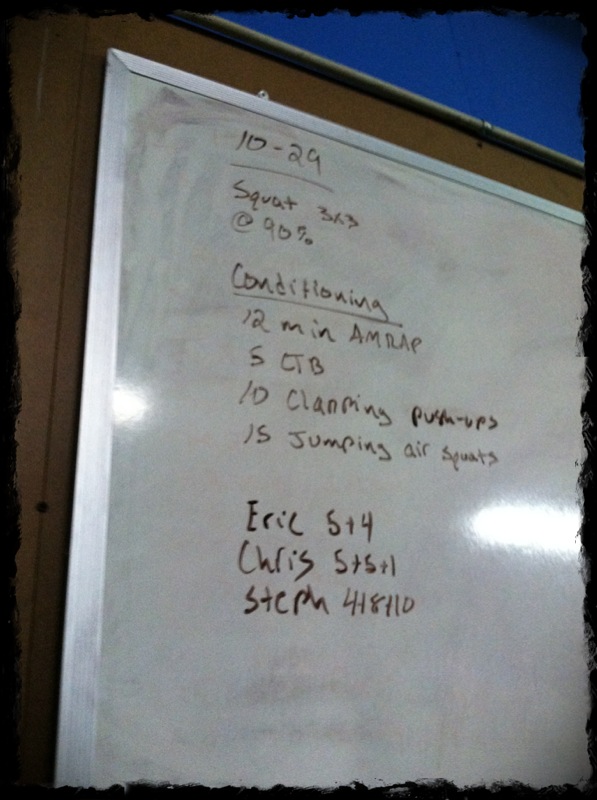 10-29
Squat 3x3
@ 90%
Conditioning
12 min AMRAP
5 CTB
10 Clapping push-ups
15 Jumping air squats
Eric 5+4
Chris 5+5+1
Steph 4+8+10